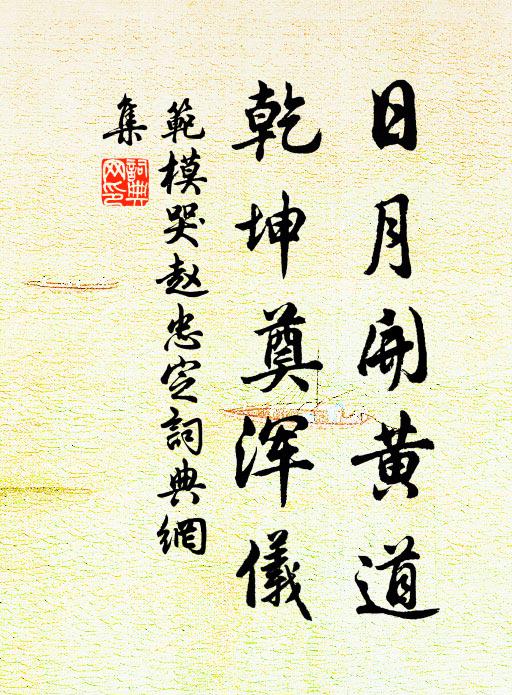 日月開黄道
乾坤奠浑儀
範模哭赵忠定詞典網
集
詞典
网印